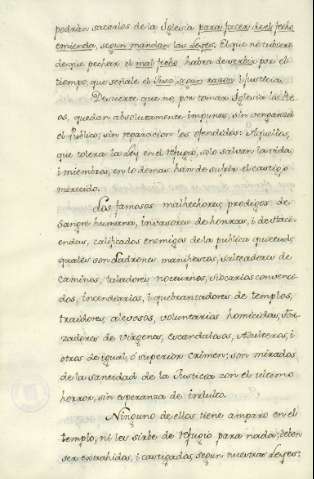 podràn sacarlos de la Iglesia para facer de el fecho
emienda, segun mandan las Leyes. El que no tubiere
de que pechar el mal fecho habra de servir por el
tiempo, que señale el Juez, segun razon i Justicia.
Desuerte que no por tomar Iglesia los Re-
os, quedan absolutamente impunes, sin venganza
el publico, sin reparacion los ofendidos: Aquellos,
que tolera la Ley en el refugio, solo salven la vida,
i miembros, en lo demas han de sufrir el castigo
merecido.
Los famosos malhechores, prodigos de
sangre humana, invasores de honrras, i de Haci-
endas, calificados enemigos de la publica quietud;
quales son Ladrones manifiestos, salteadores de
caminos, taladores nocturnos, Sicarios convenci-
dos, incendiarios, i quebrantadores de templos,
traidores, alevosos, voluntarios homicidas, For-
zadores de Virgenes, escandalosos, Adulteros, i
otros de igual, ó superior crimen; son mirados
de la sanctidad de la Justicia con el ultimo
horror, sin esperanza de indulto.
Ninguno de ellos tiene amparo en el
templo, ni les sirbe de refugio para nada; deben
ser extrahidos, i castigados, segun nuestras Leyes;